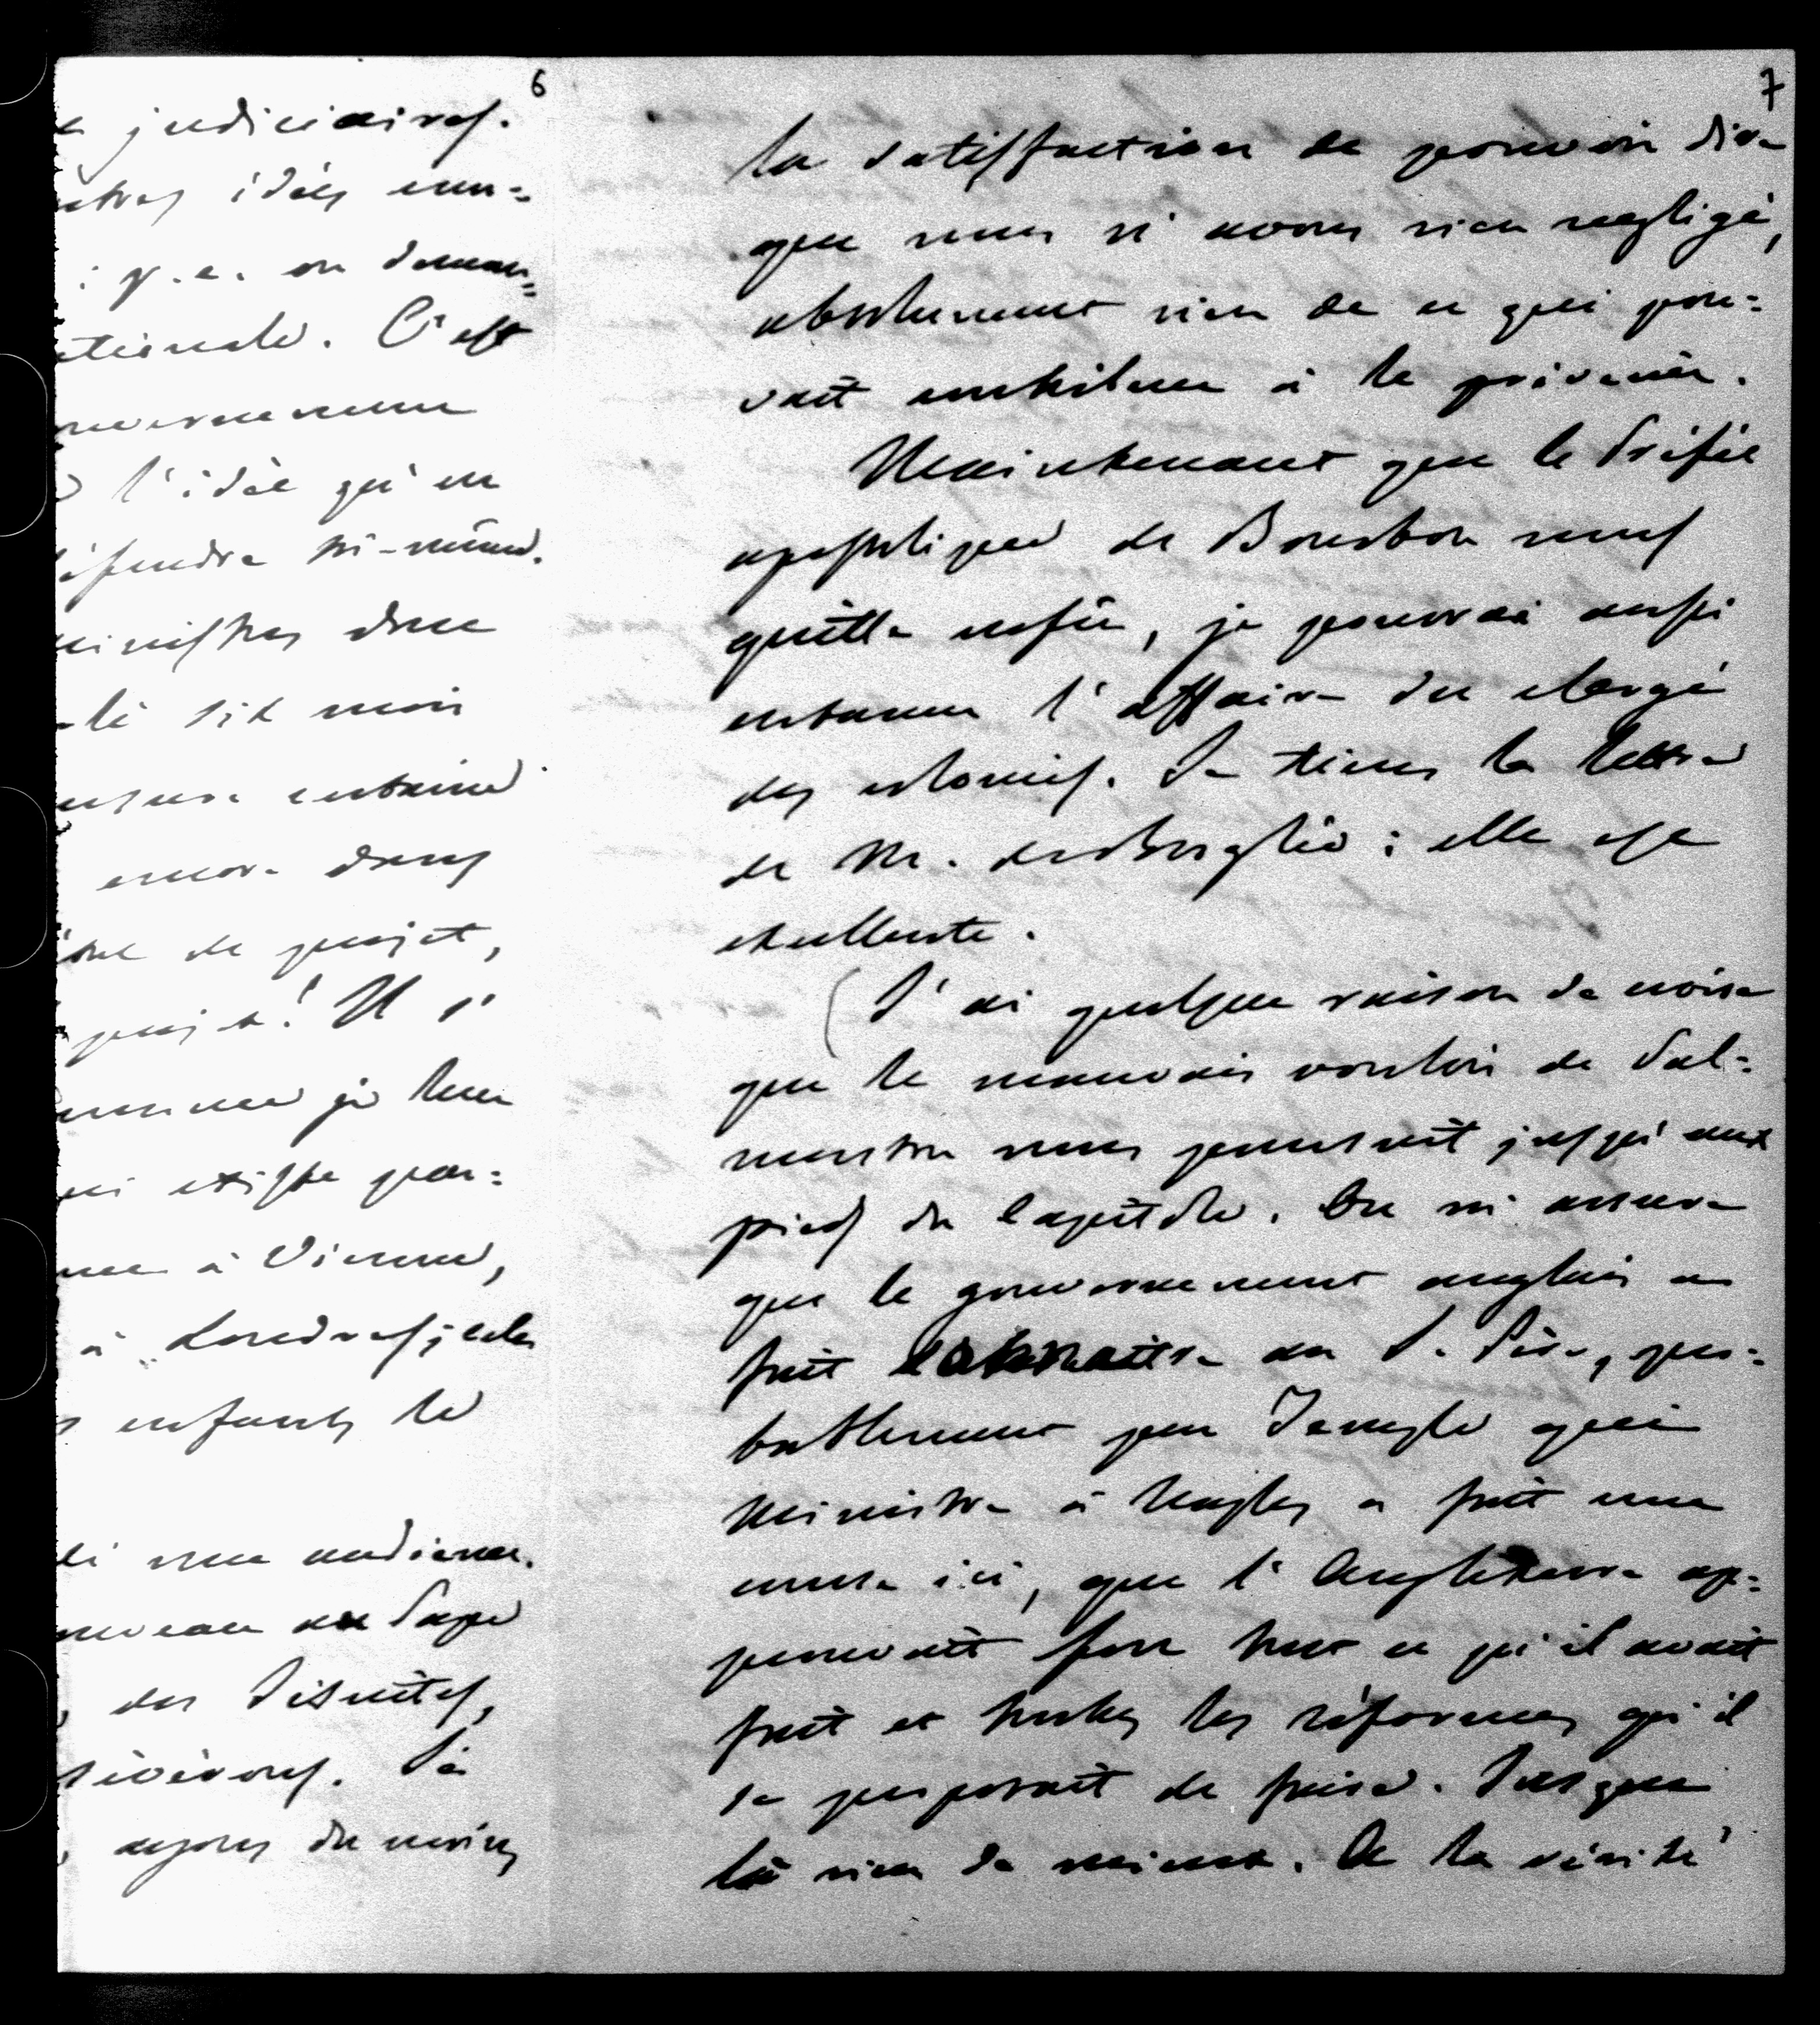 6
judiciaires.
idées con=
: p. e. on deman=
C'est
l'idée qu'en
défendre lui-même.
ministres donc
dix mois
encore dans
de projet,
projet! Il s'
je leur
existe par=
à Vienne,
à Londres; cela
enfants le
une audience.
nouveau au Pape
des Jésuites,
ajours du moins
7
la satisfaction de pouvoir dire
que nous n'avons rien negligé,
absolument rien de ce qui pou=
vait contribuer à le prévenir.
Maintenant que le Préfet
apostolique de Bourbon nous
quitte enfin, je pourrai aussi
entamer l'affaire du clergé
des colonies. Je tiens la lettre
de M. de Broglie: elle est
excellente.
(J'ai quelque raison de croire
que le mauvais vouloir de Pal=
merston nous poursuit jusqu'aux
pieds du Capitole. On m'assure
que le gouvernement anglais a
fait connaitre au S. Père, pro=
bablement par Temple qui
Ministre à Naples a fait une
course ici, que l'Angleterre ap=
prouvait fort tout ce qu'il avait
fait et toutes les réformes qu'il
se proposait de faire. Jusque
là rien de mieux. A la vérité